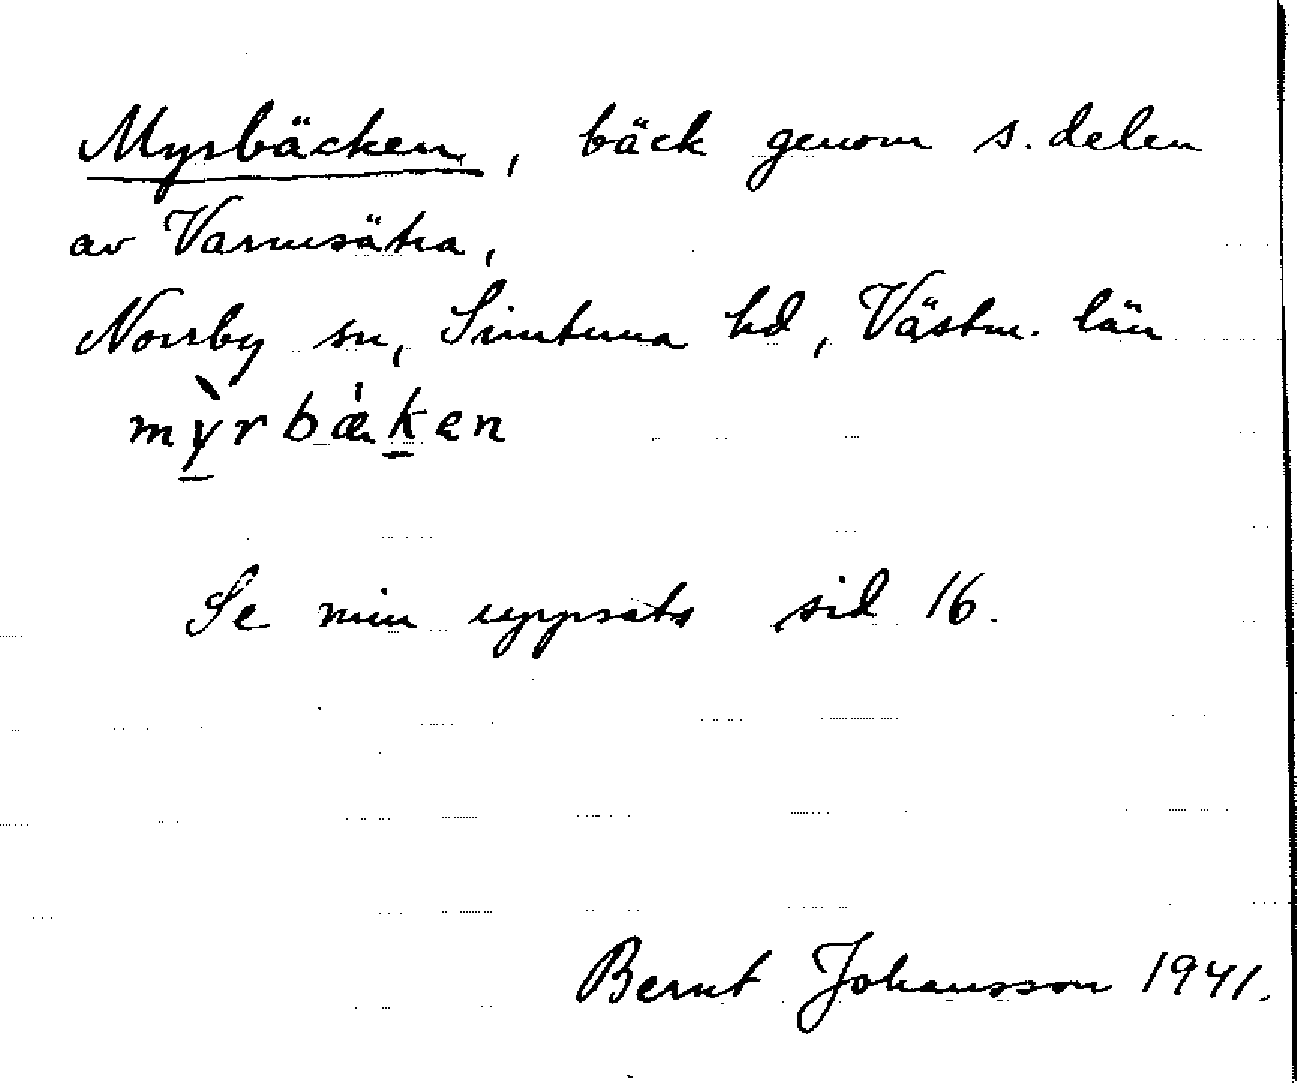 Myrbäcken, bäck genom s. delen
av Varmsätra,
Norrby sn, Simtuna hd, Västm. län
mỳrbæ̀ken
Se min uppsats sid 16.
Bernt Johansson 1941.